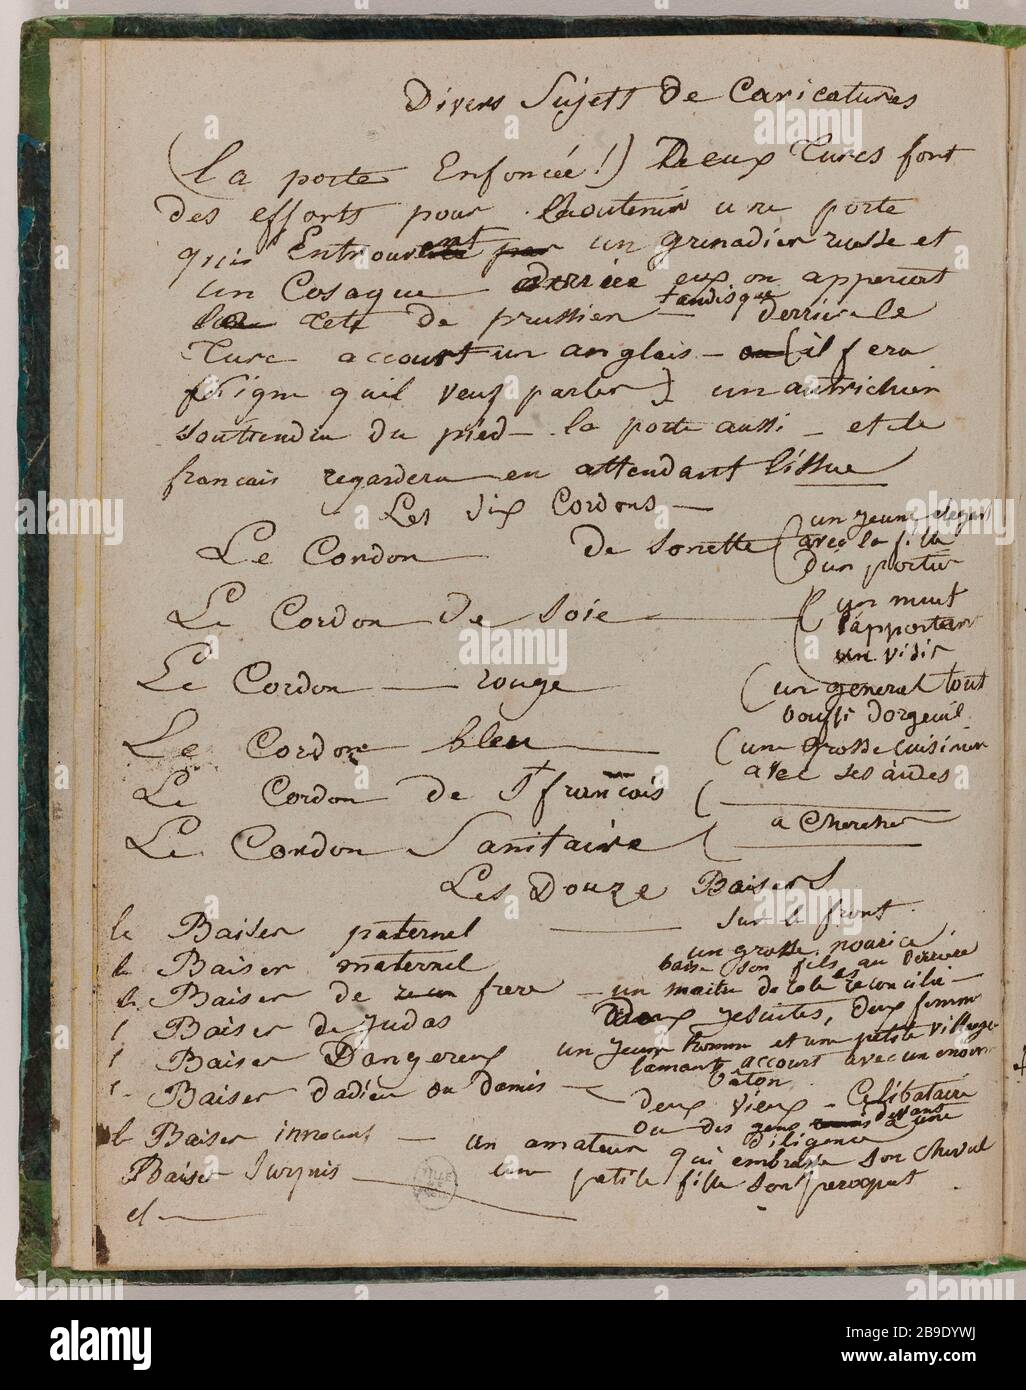 Divers Sujets de Caricatures
(la porte Enfoncée!) Deux Turcs font
des efforts pour soutenir une porte
qu'Entrouvent un grenadier russe et
un Cosaque derriere eux on apperçoit
la tete de prussien tandisque derrierele
Turc accourt un anglais - (il fera
signe quil veux parler) un autrichien
soutiendra du pied la porte aussi - et le
francais regardera en attendant l'issue
Les Six Cordons
Le Cordon de Sonette (un jeune elegant
avec la fille
d'un portier
Le Cordon de Soie (un muet
l'apportant
un visir
Le Cordon rouge (un general tout
bouffi dorgeuil
Le Cordon bleu (une grosse cuisiniere
avec ses aides
Le Cordon de St francois (
Le Cordon Sanitaire ( a chercher
Les Douze Baisers
le Baiser paternel sur le front
le Baiser maternel un grosse nourice
baise son fils au derriere
le Baiser de frere - un maitre de reconcilie -
l Baiser de Judas Deux jesuites, deux femmes
l Baiser Dangereux un jeune homme et une petite villageoise
lamant accourt avec un enorme
bâton
l Baiser dadieu ou damis - deux vieux Celibataire
ou des gens devant une
diligence
le Baiser innocent - un amateur qui embrasse son cheval
Baiser Surpris une petite fille son peroquet
et
alamy
Image ID: 2B9DYWJ
www.alamy.com